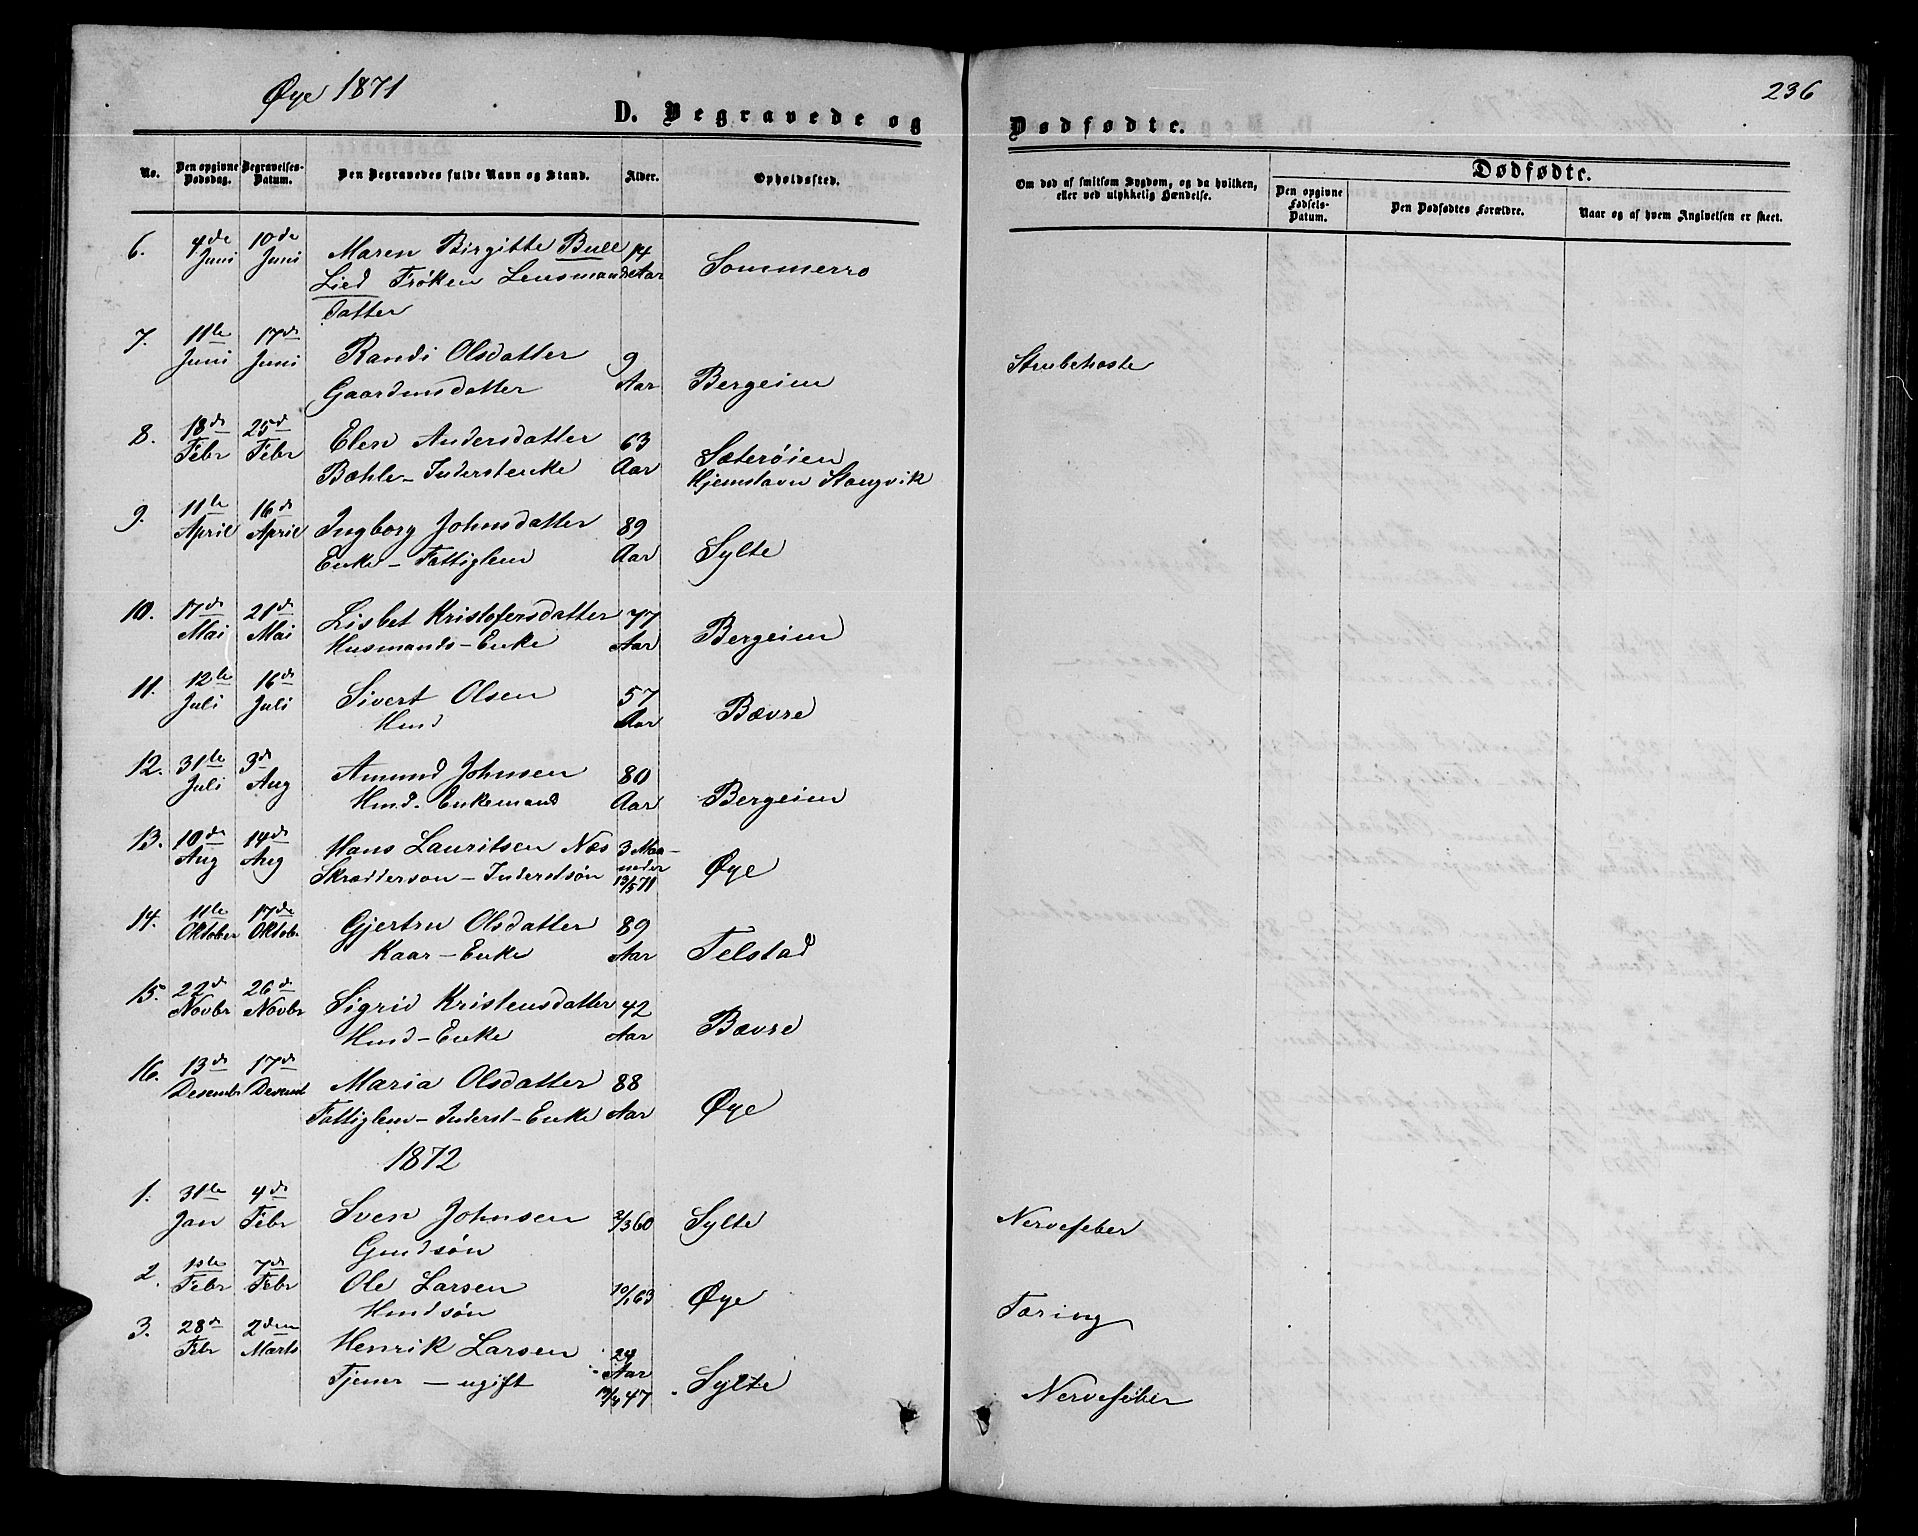 Øye 1871
236
D. Begravede og Dødfødte.
No.
Den opgivne Dødsdag.
Begravelses-Datum.
Den Begravedes fulde Navn og Stand.
Alder.
Opholdssted.
Om død af smitsom Sygdom, og da hvilken, eller ved ulykkelig Hændelse.
Dødfødte.
Den opgivne Fødsels-Datum.
Den Dødfødtes Forældre.
Naar og af hvem Angivelsen er skeet.
6. 4de 10de Maren Birgitte Bull 14
Juni Juni Lied Frøken Lensmands Aar Sommerro
Datter
7. 11te 17de Randi Olsdatter 9 Strubehoste
Juni Juni Gaardmsdatter Aar Bergeim
8. 18de 25de Elen Andersdatter 63 Sæterøien
Febr Febr Bæhle - Inderstenke Aar Hjemstavn Stangvik
9. 11te 16de Ingborg Johnsdatter 89
April April Enke - Fattiglem Aar Sylte
10. 17de 21de Lisbet Kristofersdatter 77
Mai Mai Husmands-Enke Aar Bergeim
11. 12te 16de Sivert Olsen 57
Juli Juli Hmd Aar Bævre
12. 31te 3de Amund Johnsen 80
Juli Aug Hmd. Enkemand Aar Bergeim
13. 10de 14de Hans Lauritsen Næs 3 Maa-
Aug Aug Skrædderson - Inderstsøn neder Øye
13/5 71
14. 11te 17de Gjertru Olsdatter 89
Oktober Oktobr Kaar - Enke Aar Telstad
15. 22de 26de Sigrid Kristensdatter 42
Novbr Novbr Hmd - Enke Aar Bævre
16. 13de 17de Maria Olsdatter 88
Desembr Desembr Fattiglem - Inderst - Enke Aar Øye
1872
1. 31te 4de Sven Johnsen 2/3 60 Sylte Nervefeber
Jan Febr Gmdsøn
2. 1ste 7de Ole Larsen 10/1 63 Øye Tæring
Febr Febr Hmdsøn
3. 28de 2den Henrik Larsen 24
Febr Marts Tjener - ugift Aar Sylte Nervefeber
47